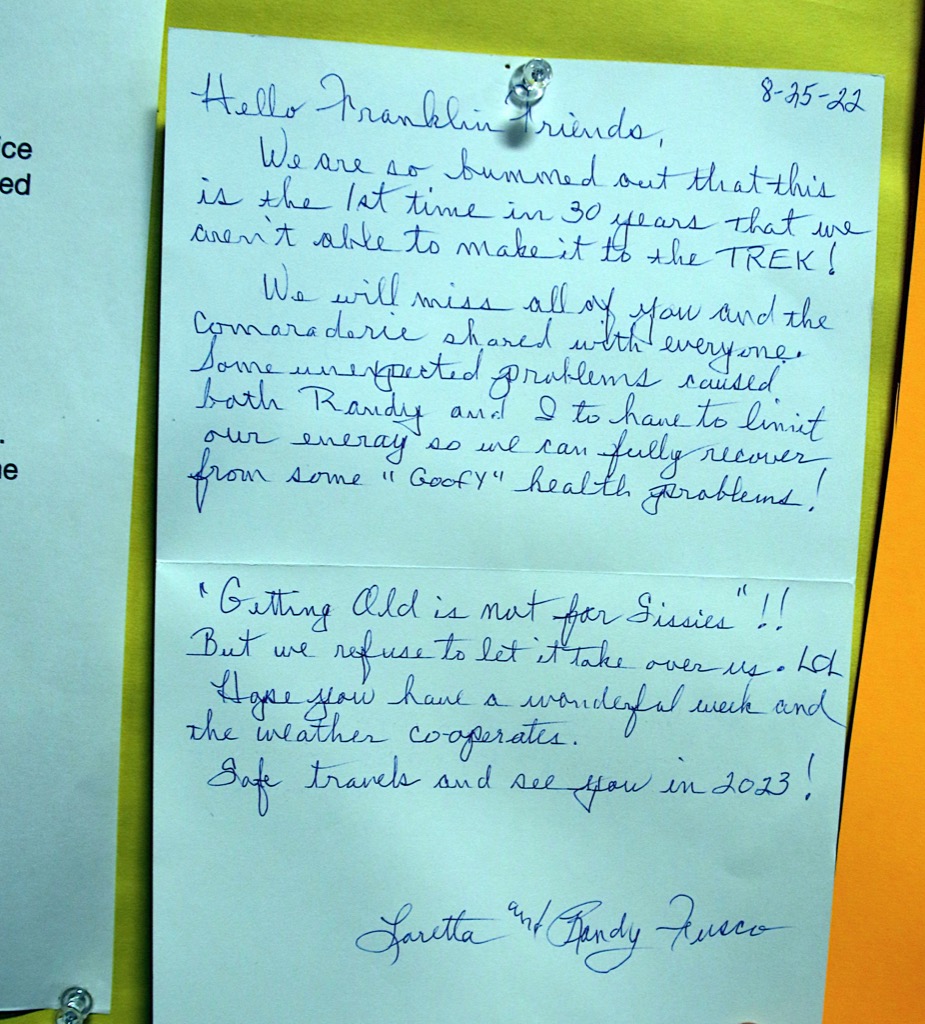 8-25-22
Hello Franklin Friends,
We are so bummed out that this
is the 1st time in 30 years that we
aren't able to make it to the TREK!
We will miss all of you and the
Comaraderie shared with everyone.
Some unexpected problems caused
both Randy and I to have to limit
our energy so we can fully recover
from some "GOOFY" health problems!
"Getting Old is not for Sissies"!!
But we refuse to let it take over us. LOL
Hope you have a wonderful week and
the weather co-operates.
Safe travels and see you in 2023!
Loretta and Randy Fusco